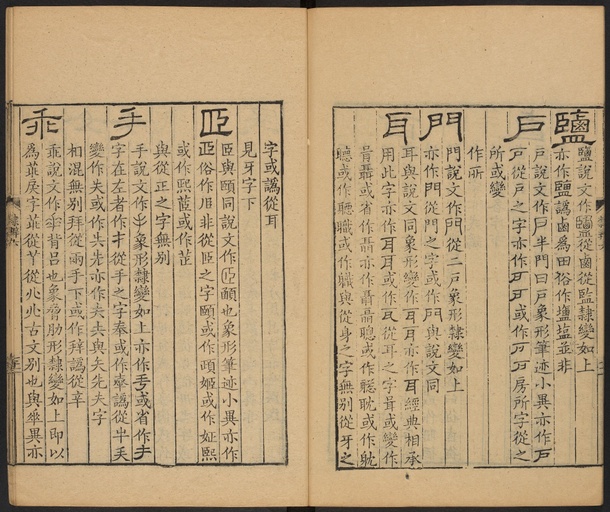 鹽 鹽說文作鹽從鹵從監隸變如上
亦作鹽譌鹵爲田俗作塩塩並非
戶 戶說文作戶半門曰戶象形筆迹小異亦作戶
戶從戶之字亦作戶或作房所字從之
所或變
作所
門 門說文作門從二戶象形隸變如上
亦作門從門之字或作門與說文同
耳 耳與說文同象形變作耳亦作耳經典相承
用此字亦作耳或作耳從耳之字咠或變作
咠聶或省作聶亦作聶聰或作聦耽或作躭
聽或作聽職或作軄與從身之字無別從牙之
字或譌從耳
見牙字下
𦣝 𦣝與頤同說文作𦣝顄也象形筆迹小異亦作
𦣝俗作𦣝非從𦣝之字頤或作頤姬或作姃熙
或作熙茝或作茝
與從正之字無別
手 手說文作手象形隸變如上亦作手或省作手
字在左者作扌從手之字奉或作奉譌從
變作夫或作失先亦作夫與夫先夫字
相混無別拜從兩手下或作拜譌從辛
𠂹 說文作背呂也象脅肋形隸變如上即以
爲𠂹戾字𠂹從丫從𠈌𠈌古文別也與𠂹異亦